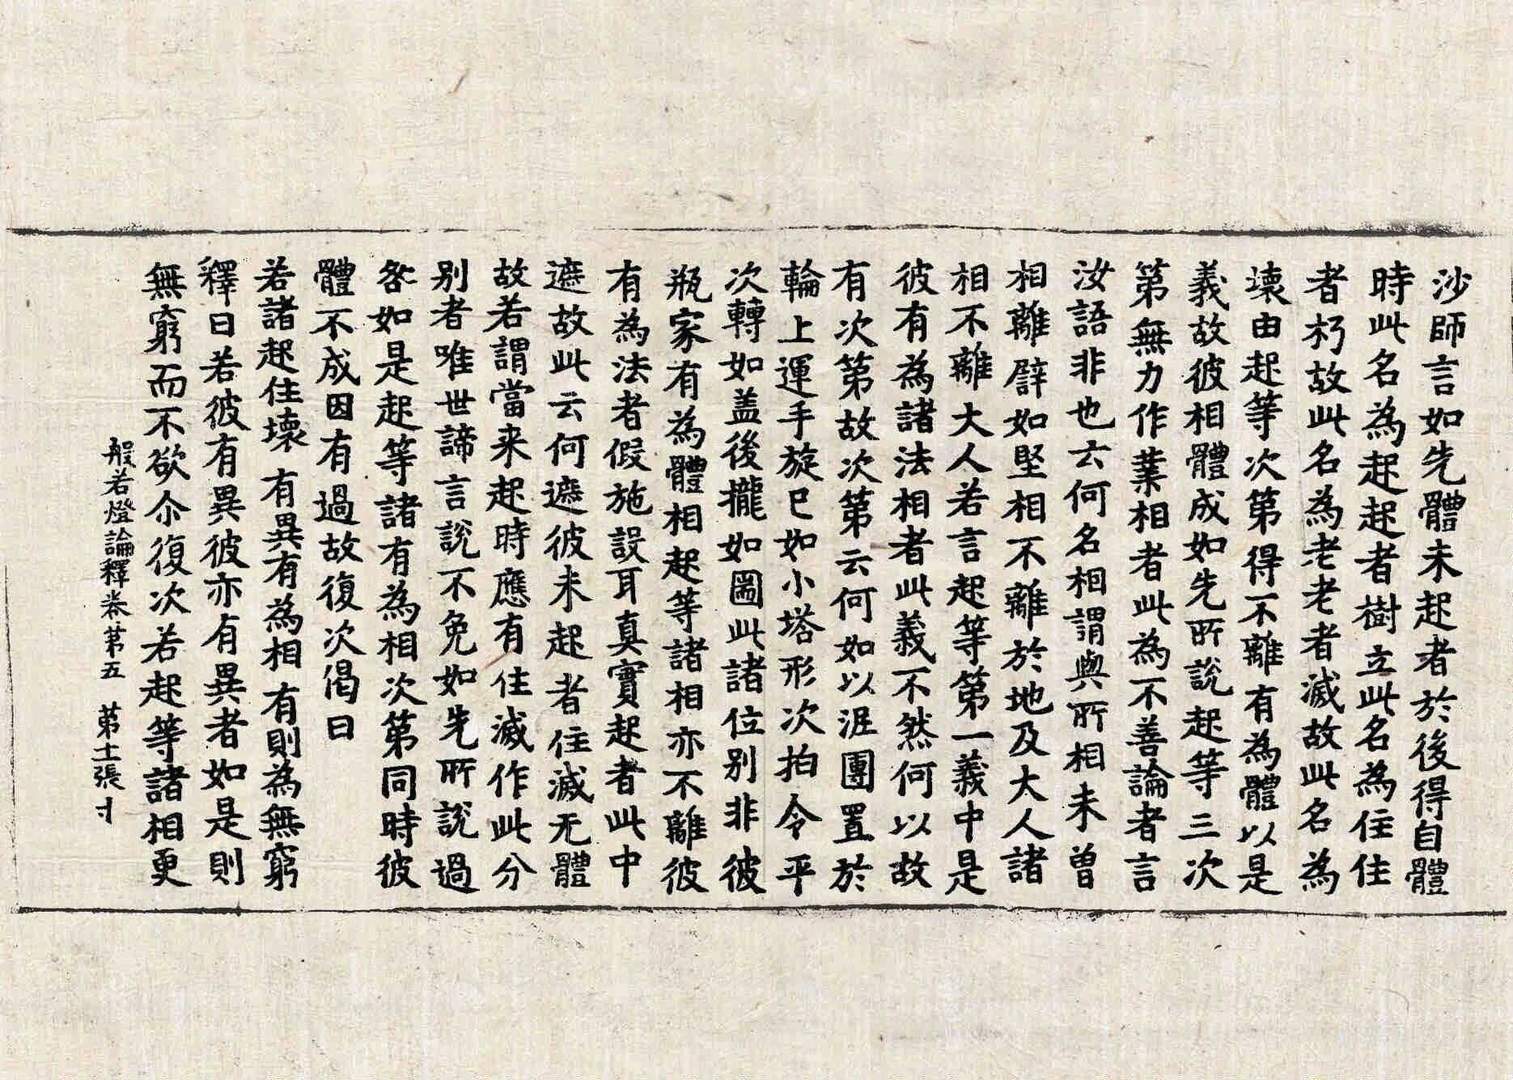 沙師言如先體未起者於後得自體
時此名為起起者樹立此名為住住
者朽故此名為老老者滅故此名為
壞由起等次第得不離有為體以是
義故彼相體成如先所說起等三次
第無力作業相者此為不善論者言
汝語非也云何名相謂與所相未曾
相離辟如堅相不離於地及大人諸
相不離大人若言起等第一義中是
彼有為諸法相者此義不然何以故
有次第故次第云何如以泥團置於
輪上運手旋已如小塔形次拍令平
次轉如盖後攏如圖此諸位別非彼
瓶家有為體相起等諸相亦不離彼
有為法者假施設耳真實起者此中
遮故此云何遮彼未起者住滅无體
故若謂當来起時應有住滅作此分
別者唯世諦言說不免如先所說過
咎如是起等諸有為相次第同時彼
體不成因有過故復次偈曰
若諸起住壞 有異有為相 有則為無窮
釋曰若彼有異彼亦有異者如是則
無窮而不欲尒復次若起等諸相更
般若燈論釋卷第五 第十一張 寸